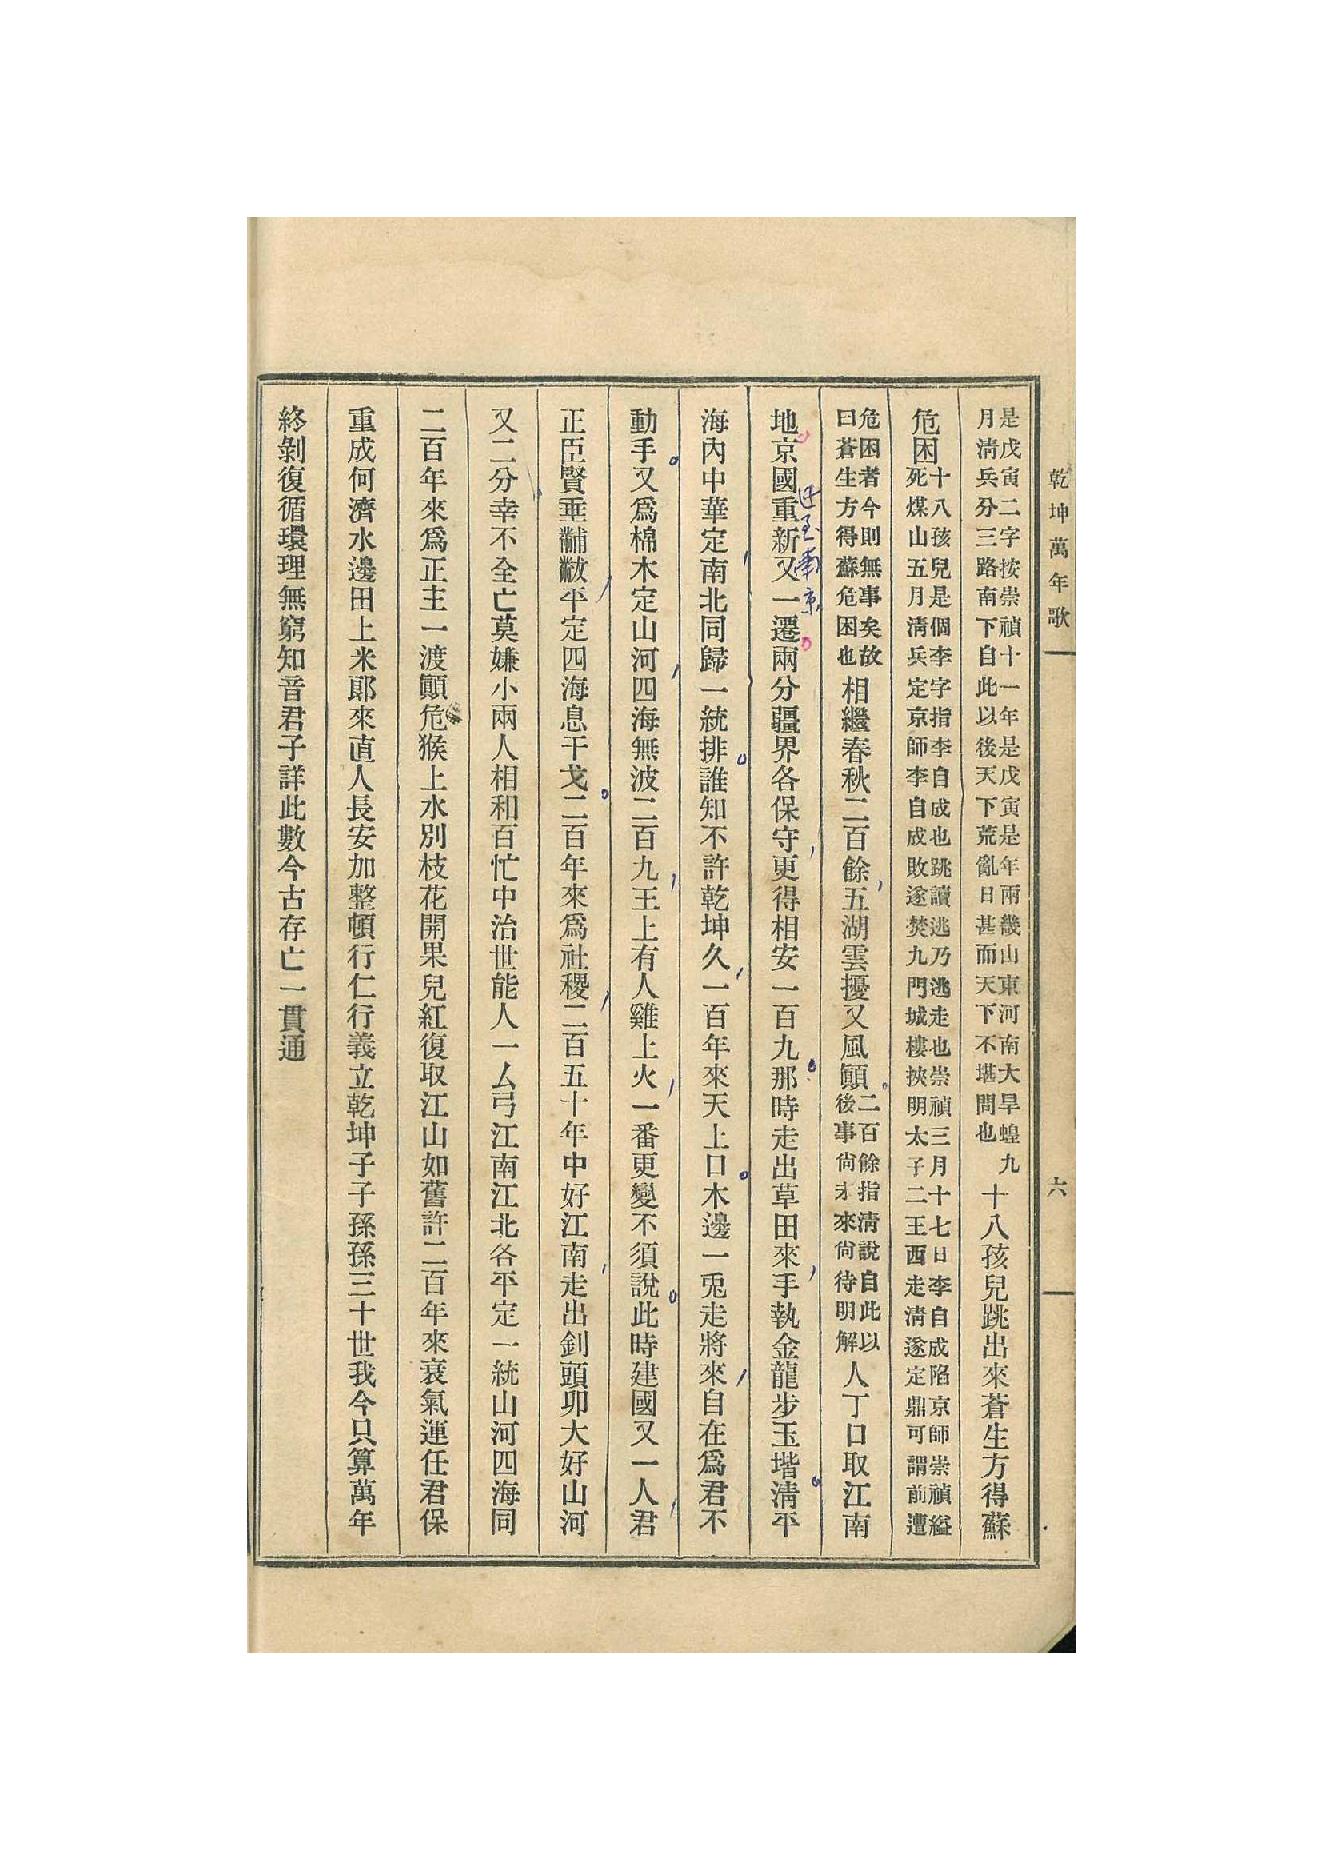 乾坤萬年歌
六
是戊寅二字按崇禎十一年是戊寅是年兩畿山東河南大旱蝗九
月淸兵分三路南下自此以後天下荒亂日甚而天下不堪問也
十八孩兒跳出來蒼生方得蘇
危困
十八孩兒是個李字指李自成也跳讀逃乃逃走也崇禎三月十七日李自成陷京師崇禎縊
死煤山五月淸兵定京師李自成敗遂焚九門城樓挾明太子二王西走淸遂定鼎可謂前遭
危困者今則無事矣故
曰蒼生方得蘇危困也
相繼春秋二百餘五湖雲擾又風顚
二百餘指淸說自此以
後事尙未來尙待明解
人丁口取江南
地京國重新又一遷兩分疆界各保守更得相安一百九那時走出草田來手執金龍步玉堦淸平
迁至南京
海內中華定南北同歸一統排誰知不許乾坤久一百年來天上口木邊一兎走將來自在爲君不
動手又爲棉木定山河四海無波二百九王上有人雞上火一番更變不須說此時建國又一人君
正臣賢垂黼黻平定四海息干戈二百年來爲社稷二百五十年中好江南走出釗頭卯大好山河
又二分幸不全亡莫嫌小兩人相和百忙中治世能人一厶弓江南江北各平定一統山河四海同
二百年來爲正主一渡顚危猴上水別枝花開果兒紅復取江山如舊許二百年來衰氣運任君保
重成何濟水邊田上米郞來直人長安加整頓行仁行義立乾坤子子孫孫三十世我今只算萬年
終剝復循環理無窮知音君子詳此數今古存亡一貫通